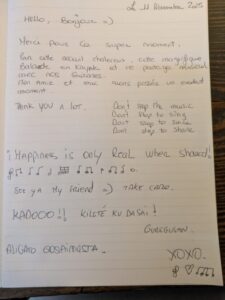 Le 11 Novembre 2025
Hello, Bonjour =)
Merci pour la super moment.
Pour cette accueil chaleureux, cette magnifique
Balade en Kayak et ce partage musical
avec nos Guitares.
Mon Amie et moi avons passés un excellent
moment.
Thank you a lot. Don't stop the music
Don't stop to sing
Don't stop to smile
Don't stop to share
¡Happiness is only Real when shared!
See ya my friend =) Take care.
KADOOO!! KIOTÉ KU DASAI!
ALIGATO GOSAIMASTA. XOXO.